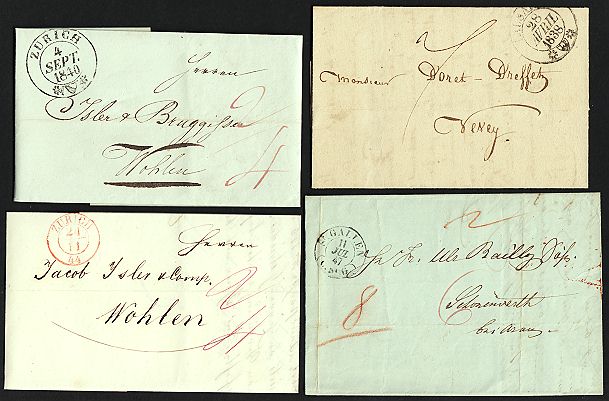 ZURICH
4
SEPT.
1840
Herren
Isler & Bruggisser
Wohlen
2
4
28
AVRIL
1838
Monsieur Doret-Dreffet
Vevey.
ZURICH
21
11
44
Herren
Jacob Isler & Comp.
Wohlen
2
4
ST GALLEN
11
JUL
47
2
8
Schönenwerth
bei Arau